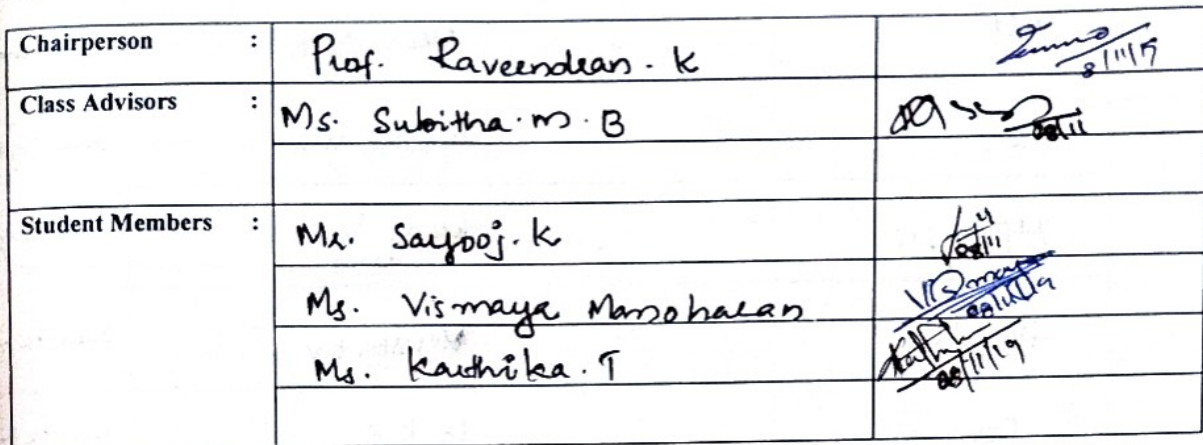 Chairperson : Prof. Raveendran. K 8/11/19
Class Advisors : Ms. Subitha. m. B 08/11
Student Members : Mr. Sayooj. K 08/11
Ms. Vismaya Manoharan Vismaya 08/11/19
Ms. Karthika. T 08/11/19